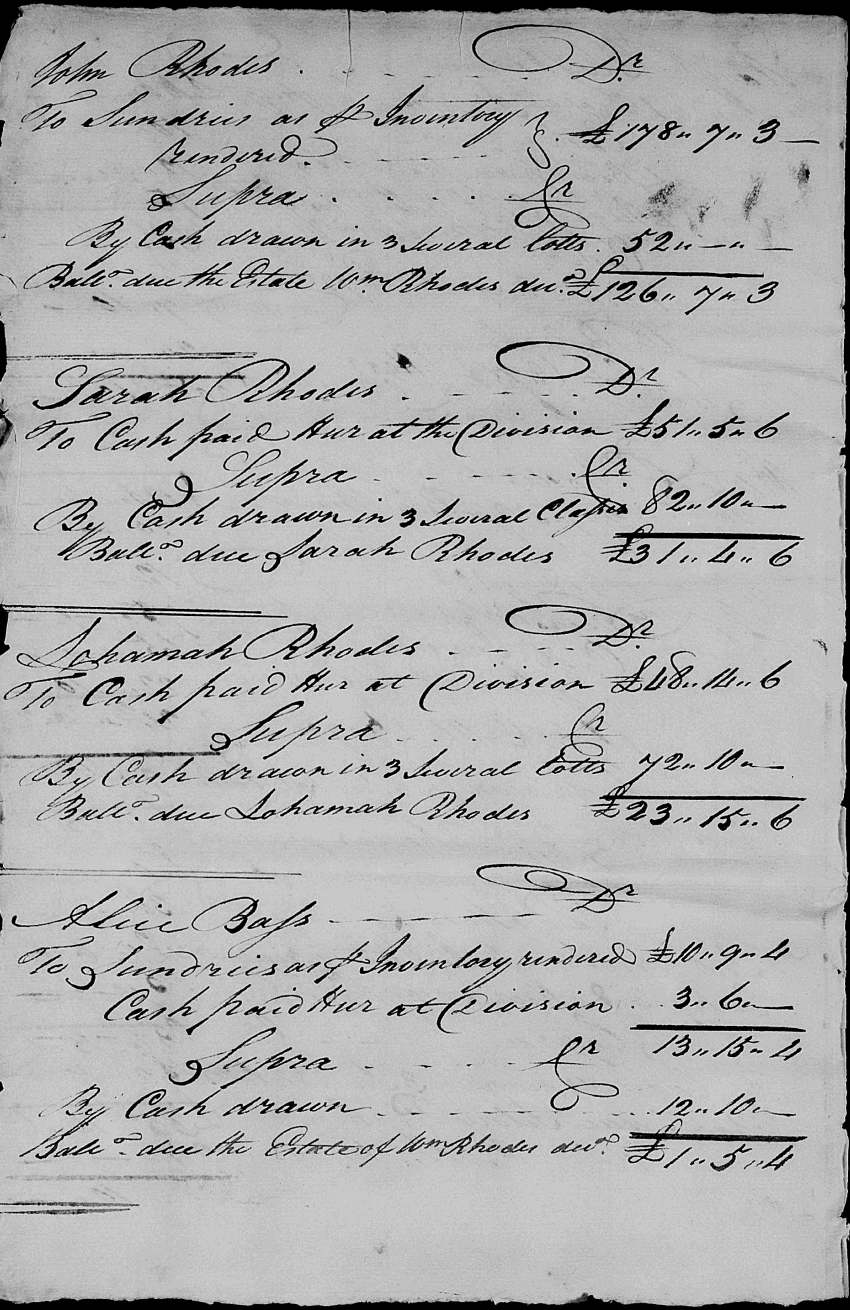 John Rhodes . . . . . Dr
To Sundries as pr Inventory } £178 " 7 " 3 —
rendered . . . .
Supra . . . . . Cr
By Cash drawn in 3 Several Lotts . 52 " — " —
Ballce. due the Estate Wm. Rhodes decd. £126 " 7 " 3
Sarah Rhodes . . . . . . Dr
To Cash paid Hur at the Division £51 " 5 " 6
Supra . . . . . Cr
By Cash drawn in 3 Several Classes 82 " 10 " —
Ballce. due Sarah Rhodes £31 " 4 " 6
Lohamah Rhodes . . . . . Dr
To Cash paid Hur at Division £48 " 14 " 6
Supra . . . . . Cr
By Cash drawn in 3 Several Lotts 72 " 10 " —
Ballce. due Lohamah Rhodes £23 " 15 " 6
Alice Bass — — — — Dr
To Sundries as pr Inventory rendered £10 " 9 " 4
Cash paid Hur at Division . . 3 " 6 " —
13 " 15 " 4
Supra . . . . Cr
By Cash drawn . . . . . . 12 " 10 " —
Ballce. due the Estate of Wm Rhodes decd. £1 " 5 " 4